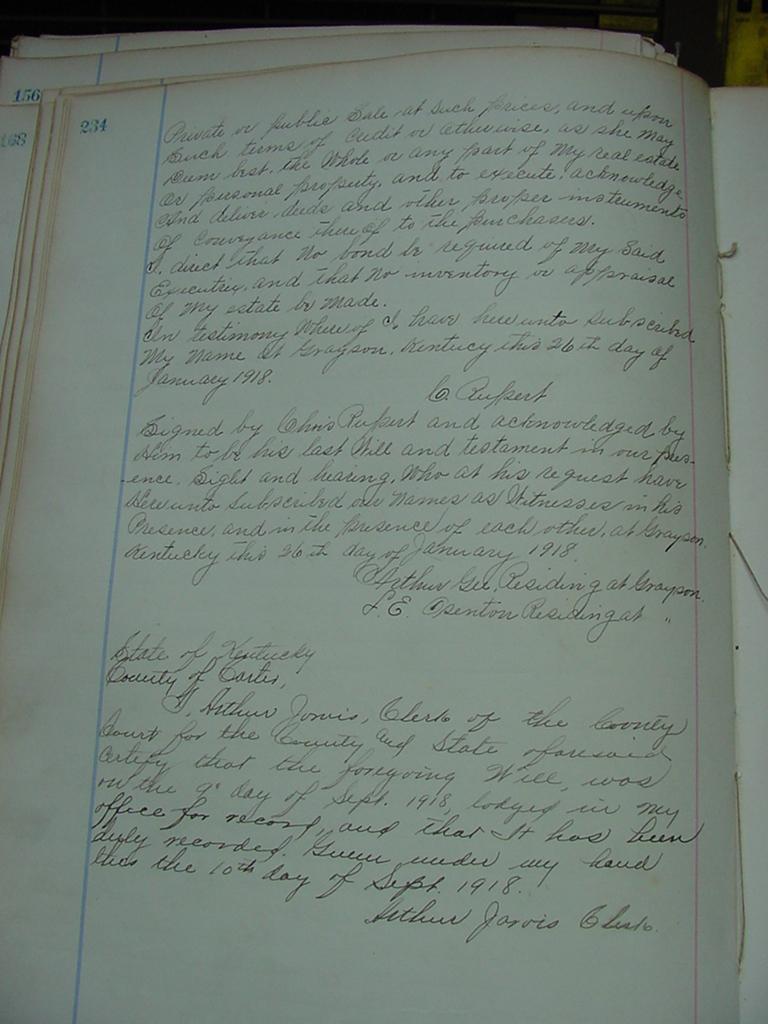 156
168
234
Private or public Sale at Such prices, and upon
Such terms of Credit or Otherwise, as she may
Deem best, the Whole or any part of My real estate
Or personal property, and to execute, acknowledge
And deliver deeds and other proper instruments
Of Conveyance there of to the purchasers.
I, direct that No bond be required of My Said
Executrix, and that No inventory or appraisal
Of My estate be Made.
In testimony Where of I, have here unto Subscribed
My Name At Grayson, Kentucy this 26 th day of
January 1918.
C Ruppert
Signed by Chris Ruppert and acknowledged by
Him to be his last Will and testament in our pres-
-ence, Sight and hearing, Who at his request have
Here unto Subscribed our Names as Witnesses in his
Presence, and in the presence of each other, at Grayson,
Kentucky this 26 th day of January 1918.
Arthur Gee, Residing at Grayson.
L. E. Osenton Residing at "
State of Kentucky
County of Carter,
I, Arthur Jarvis, Clerk of the County
Court for the County and State aforesaid
Certify that the foregoing Will, was
on the 9" day of Sept. 1918, lodged in my
office for record, and that It has been
duly recorded. Given under my hand
this the 10th day of Sept. 1918.
Arthur Jarvis Clerk.